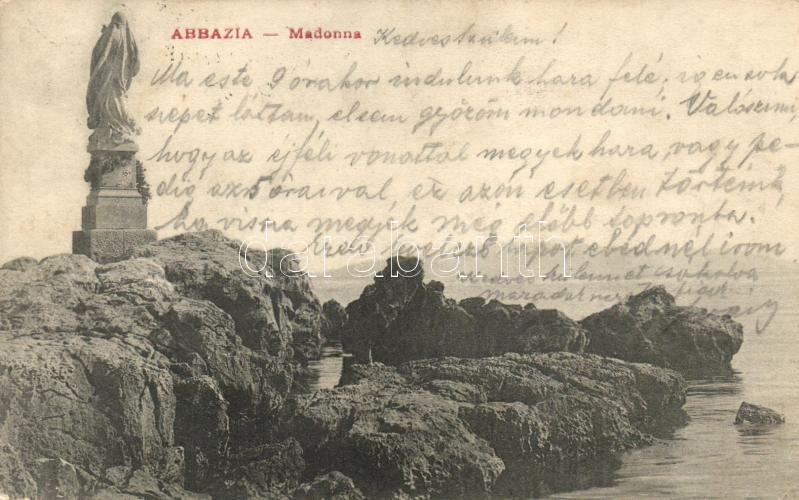 ABBAZIA — Madonna Kedves Szüleim!
Ma este 9 órakor indulunk hara felé, igen sok
szépet láttam, elsem győzöm mondani. Valószinü,
hogy az éjféli vonattal megyek hara, vagy pe-
dig az 5 óraival, ez azon esetben történik
ha visna megyek még előbb Sopronba.
lapot ebédnél irom
csókolva
maradok
garabontas